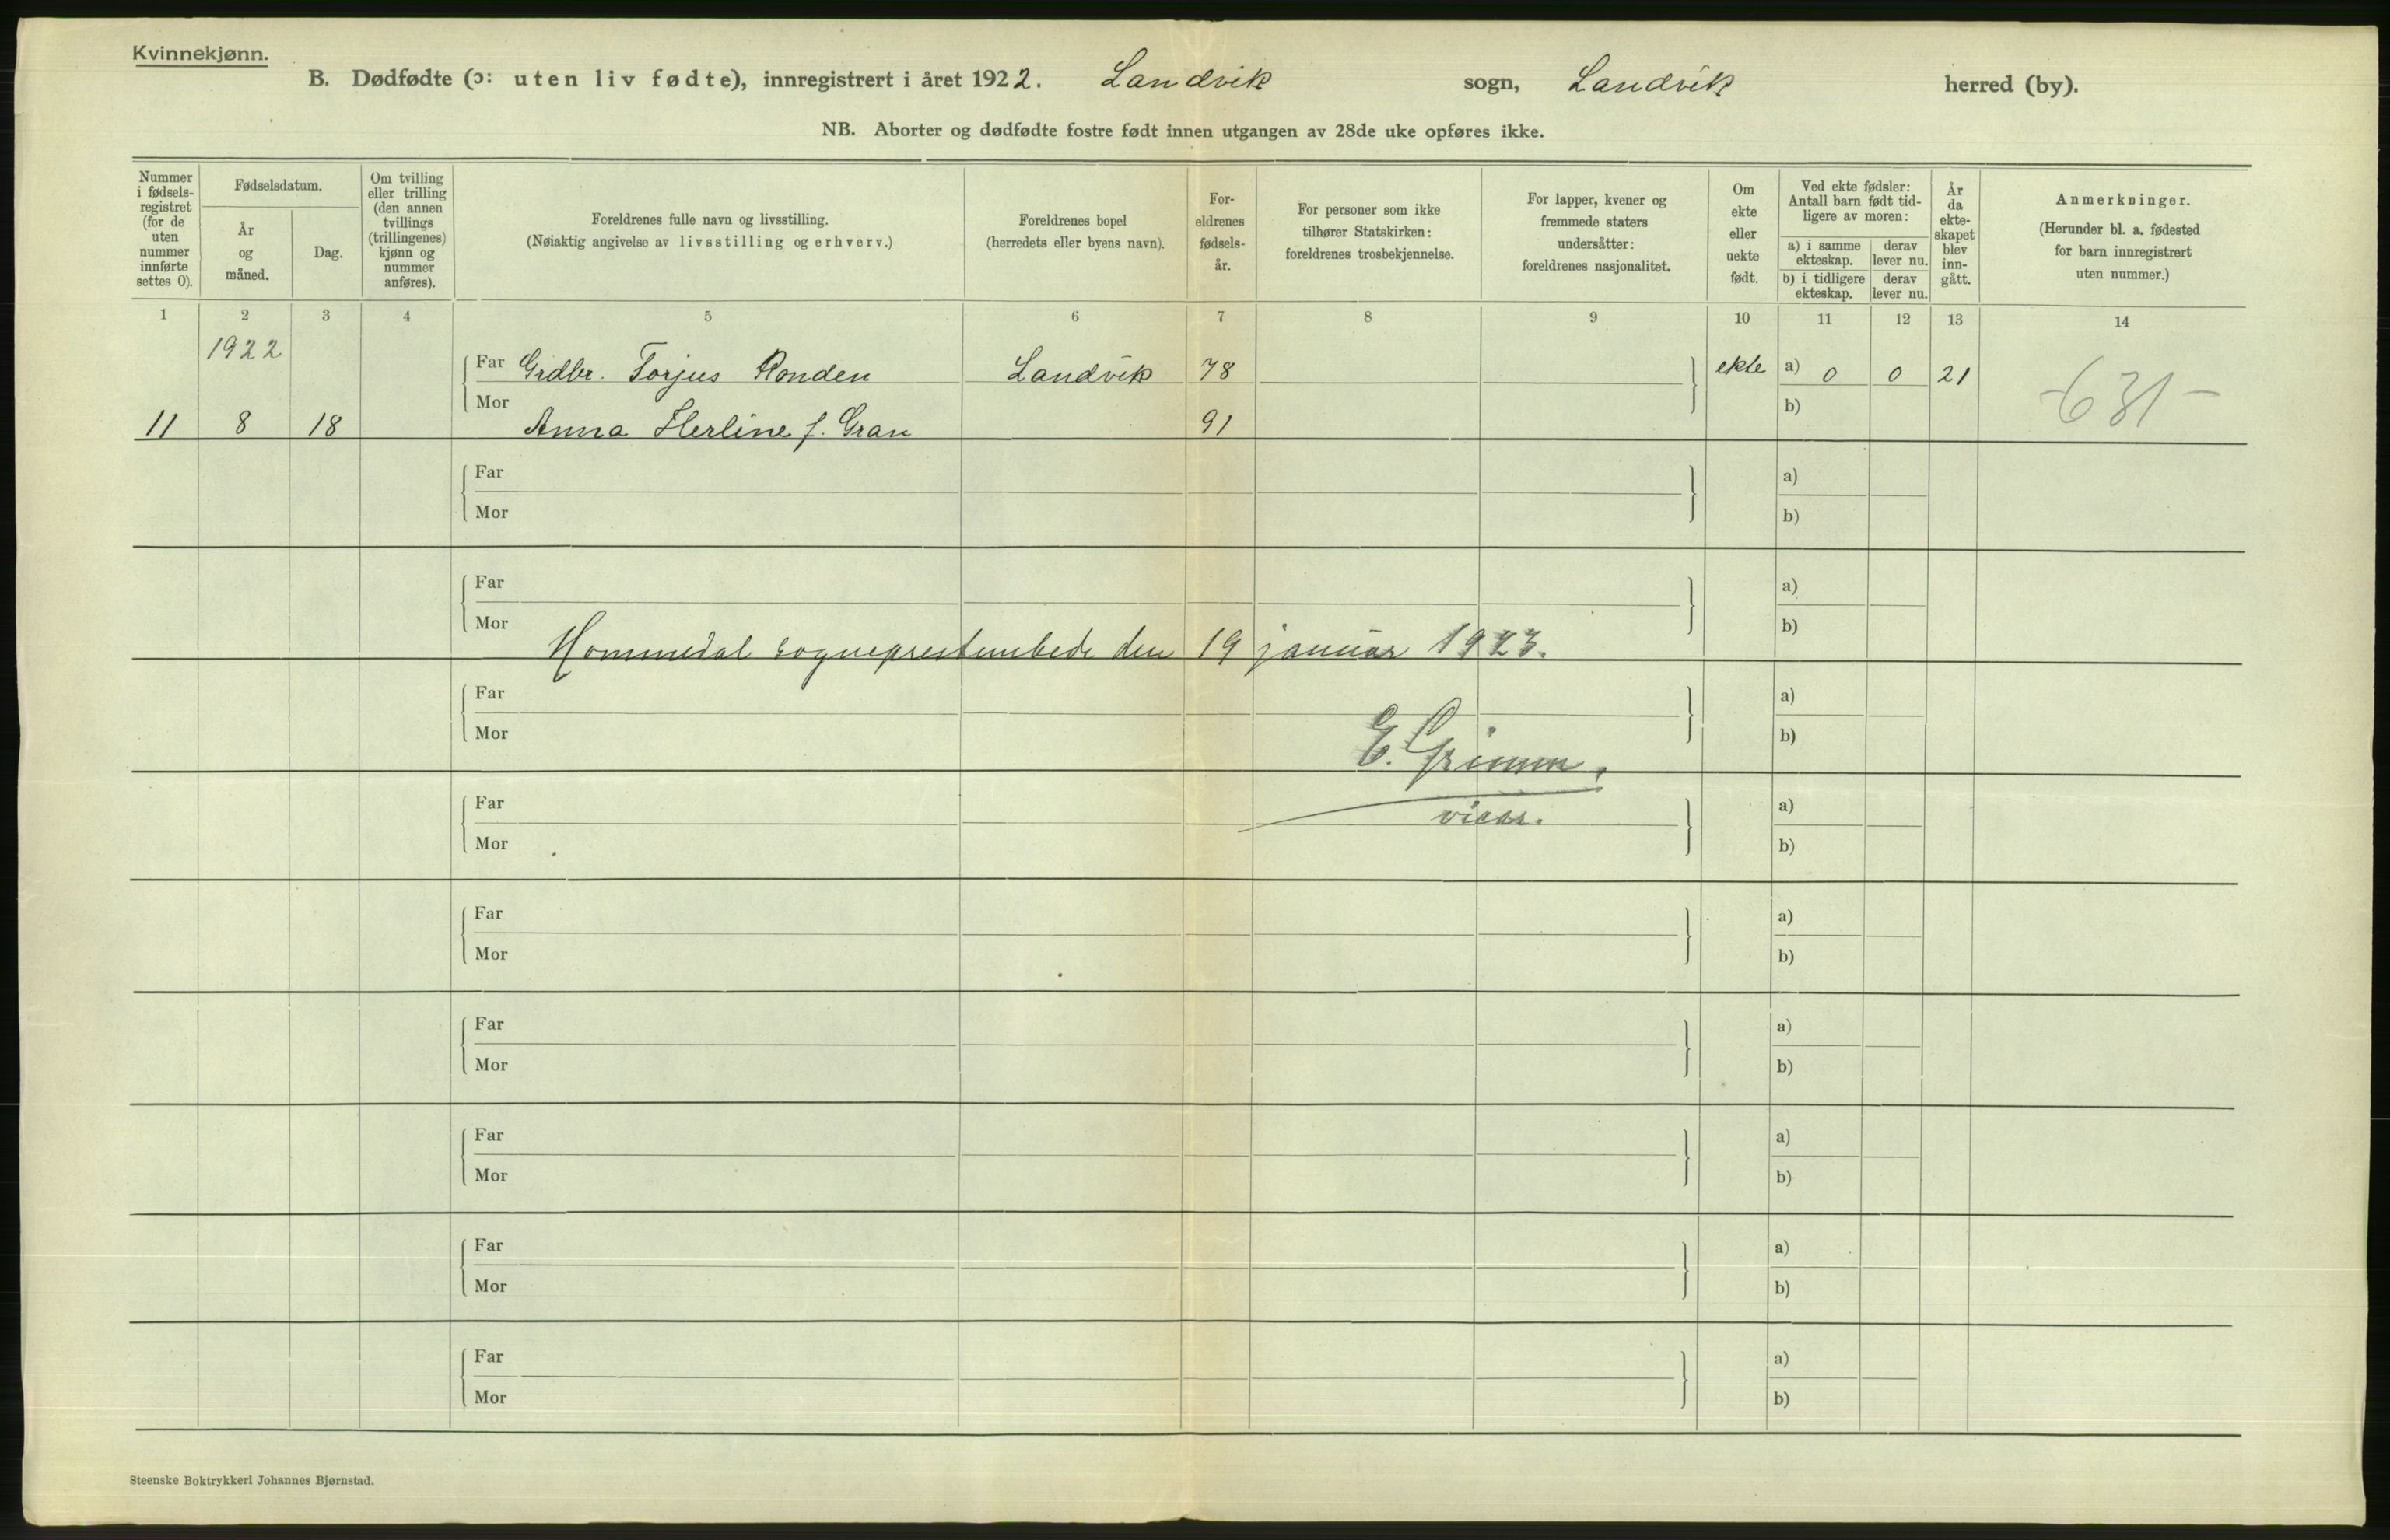 Kvinnekjønn.
B. Dødfødte (ɔ: uten liv fødte), innregistrert i året 1922. Landvik sogn, Landvik herred (by).
NB. Aborter og dødfødte fostre født innen utgangen av 28de uke opføres ikke.
Nummer i fødsels-registret (for de uten nummer innførte settes 0).
Fødselsdatum.
År og måned.
Dag.
Om tvilling eller trilling (den annen tvillings (trillingenes) kjønn og nummer anføres).
Foreldrenes fulle navn og livsstilling.
(Nøiaktig angivelse av livsstilling og erhverv.)
Foreldrenes bopel
(herredets eller byens navn).
For-eldrenes fødsels-år.
For personer som ikke tilhører Statskirken: foreldrenes trosbekjennelse.
For lapper, kvener og fremmede staters undersåtter: foreldrenes nasjonalitet.
Om ekte eller uekte født.
Ved ekte fødsler: Antall barn født tid-ligere av moren:
a) i samme ekteskap.
derav lever nu.
b) i tidligere ekteskap.
derav lever nu.
År da ekte-skapet blev inn-gått.
Anmerkninger.
(Herunder bl. a. fødested for barn innregistrert uten nummer.)
1 2 3 4 5 6 7 8 9 10 11 12 13 14
1922
Far Grdbr. Torjus Ronden Landvik 78 ekte a) 0 0 21
-631-
Mor b)
11 8 18 Anna Herline f. Gran 91
Far a)
Mor b)
Far a)
Mor b)
Hommedal sogneprestembede den 19 januar 1923.
Far a)
Mor b)
E. Grimm,
Far a)
vicar.
Mor b)
Far a)
Mor b)
Far a)
Mor b)
Far a)
Mor b)
Far a)
Mor b)
Far a)
Mor b)
Steenske Boktrykkeri Johannes Bjørnstad.